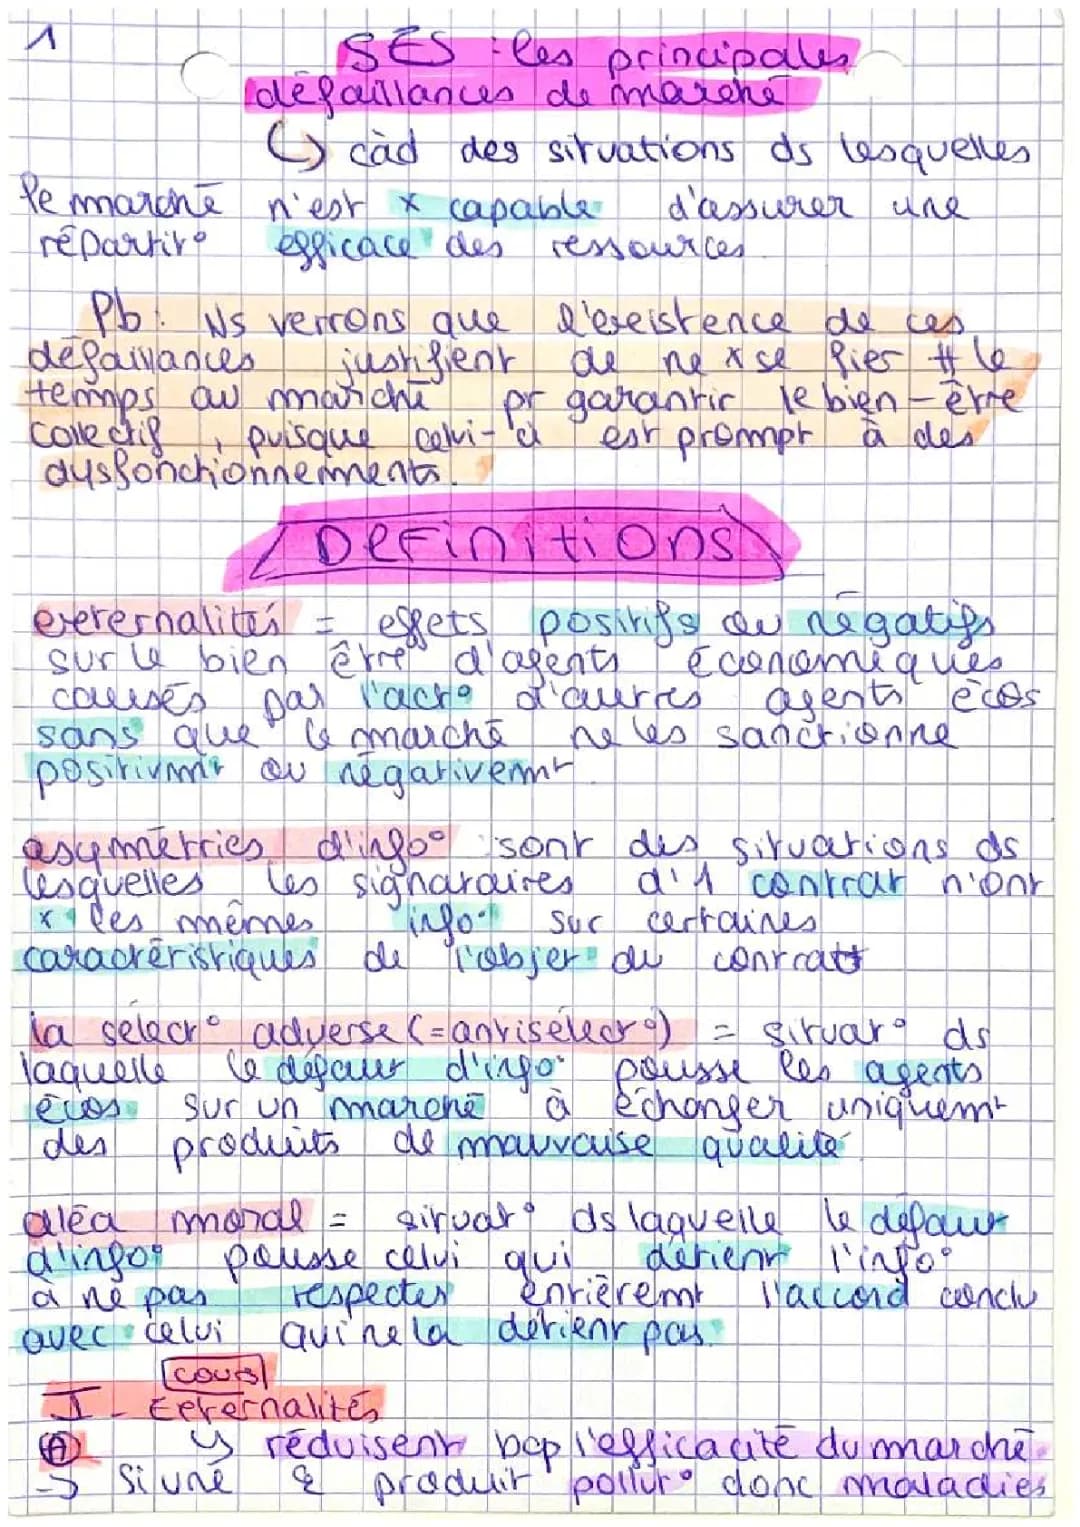 1
SES : les principales
défaillances de marché
↳ càd des situations ds lesquelles
le marché n'est x capable d'assurer une
répartit° efficace des ressources
Pb : Ns verrons que l'existence de ces
défaillances justifient de ne x se fier # le
temps au marché pr garantir le bien-être
collectif, puisque celui-ci est prompt à des
dysfonctionnements.
Definitions
externalités = effets positifs ou négatifs
sur le bien être d'agents économiques
causés par l'act° d'autres agents écos
sans que le marché ne les sanctionne
positivmt ou négativemt
asymétries d'info° sont des situations ds
lesquelles les signataires d'1 contrat n'ont
x les mêmes info° sur certaines
caractéristiques de l'objet du contrat
la sélect° adverse (=antisélect°) = situat° ds
laquelle le défaut d'info° pousse les agents
écos sur un marché à échanger uniquemt
des produits de mauvaise qualité
aléa moral = situat° ds laquelle le défaut
d'info° pousse celui qui détient l'info°
à ne pas respecter entièremt l'accord conclu
avec celui qui ne la détient pas.
cours
I - Externalités
A ↳ réduisent bcp l'efficacité du marché
→ Si une & produit pollut° donc maladies